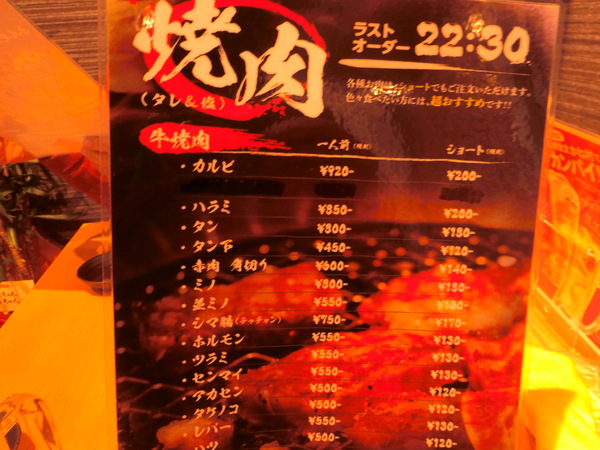 焼肉
(タレ&塩)
ラスト
オーダー 22:30
各種お肉は、ショートでもご注文いただけます。
色々食べたい方には、超おすすめです!!
牛焼肉 一人前(税別) ショート(税別)
・カルビ ¥920- ¥200-
・ハラミ ¥850- ¥200-
・タン ¥800- ¥180-
・タン下 ¥450- ¥120-
・赤肉 角切り ¥600- ¥140-
・ミノ ¥800- ¥180-
・並ミノ ¥550-
・シマ腸(テッチャン) ¥750- ¥170-
・ホルモン ¥550- ¥130-
・ツラミ ¥550- ¥130-
・センマイ ¥550- ¥130-
・アカセン ¥500- ¥120-
・タケノコ ¥550- ¥130-
・レバー ¥500- ¥120-
・ハツ